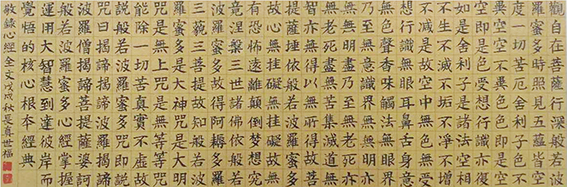 觀自在菩薩行深般若波
羅蜜多時照見五蘊皆空
度一切苦厄舍利子色不
異空空不異色色即是空
空即是色受想行識亦復
如是舍利子是諸法空相
不生不滅不垢不淨不增
不減是故空中無色無受
想行識無眼耳鼻舌身意
無色聲香味觸法無眼界
乃至無意識界無無明亦
無無明盡乃至無老死亦
無老死盡無苦集滅道無
智亦無得以無所得故菩
提薩埵依般若波羅蜜多
故心無罣礙無罣礙故無
有恐怖遠離顛倒夢想究
竟涅槃三世諸佛依般若
波羅蜜多故得阿耨多羅
三藐三菩提故知般若波
羅蜜多是大神咒是大明
咒是無上咒是無等等咒
能除一切苦真實不虛故
說般若波羅蜜多咒即說
咒曰揭諦揭諦波羅揭諦
波羅僧揭諦菩提薩婆訶
般若波羅蜜多心經掌握
運用大智慧到達彼岸而
覺悟的核心根本經典
敬錄心經全文戊戌秋真世福